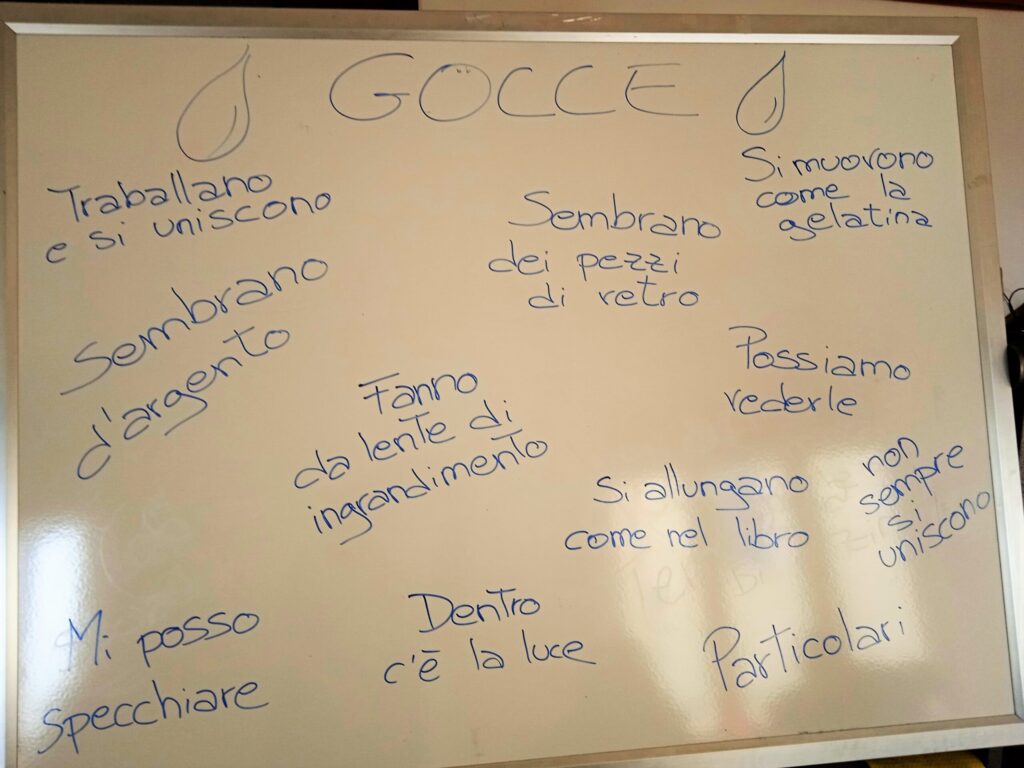 GÖCCE
Traballano
e si uniscono
Sembrano
dei pezzi
di vetro
Si muovono
come la
gelatina
Sembrano
d'argento
Fanno
da lente di
ingrandimento
Possiamo
vederle
Si allungano
come nel libro
non
sempre
si
uniscono
Mi posso
specchiare
Dentro
c'è la luce
Particolari